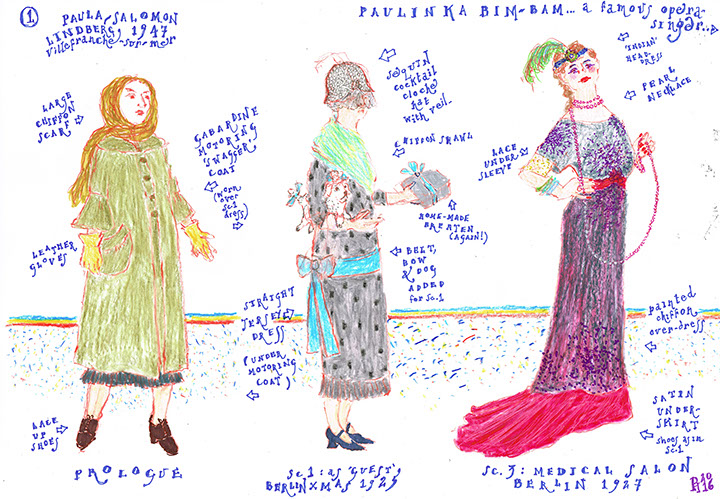 ①
PAULA SALOMON
LINDBERG, 1947
Villefranche-sur-mer
PAULINKA BIM-BAM... a famous opera-
singer...
LARGE
CHIFFON
SCARF
GABARDINE
MOTORING
'SWAGGER
COAT
(worn
over
Sc.1
dress)
LEATHER
GLOVES
LACE
UP
SHOES
PROLOGUE
SEQUIN
cocktail
cloche
hat
with veil-
CHIFFON SHAWL
HOME-MADE
(AGAIN!)
BELT,
BOW
& DOG
ADDED
for Sc.1
STRAIGHT
JERSEY
DRESS
(UNDER
MOTORING
COAT)
Sc.1: as 'GUEST',
BERLIN XMAS
'INDIAN'
HEAD-
DRESS
PEARL
NECKLACE
LACE
UNDER
SLEEVE
painted
chiffon
over-dress
SATIN
UNDER-
SKIRT
shoes as in
Sc.1
Sc.3: MEDICAL SALON
BERLIN 1927